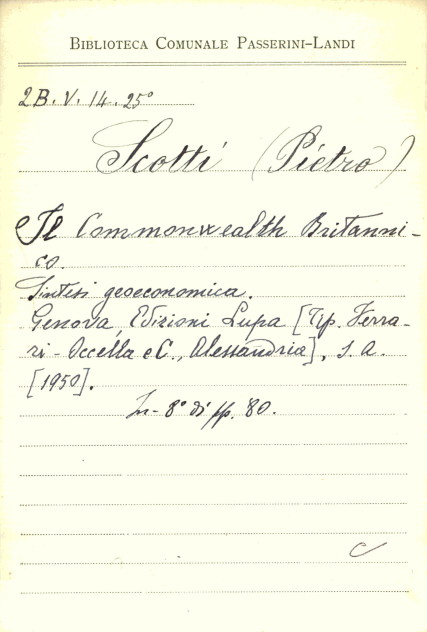 BIBLIOTECA COMUNALE PASSERINI-LANDI
2B. V. 14. 25°
Scotti (Pietro)
Il Commonwealth Britanni-
co.
Sintesi geoeconomica.
Genova, Edizioni Lupa [Tip. Ferra-
ri - Occella e C., Alessandria], s. a.
[1950].
In- 8° di pp. 80.
C